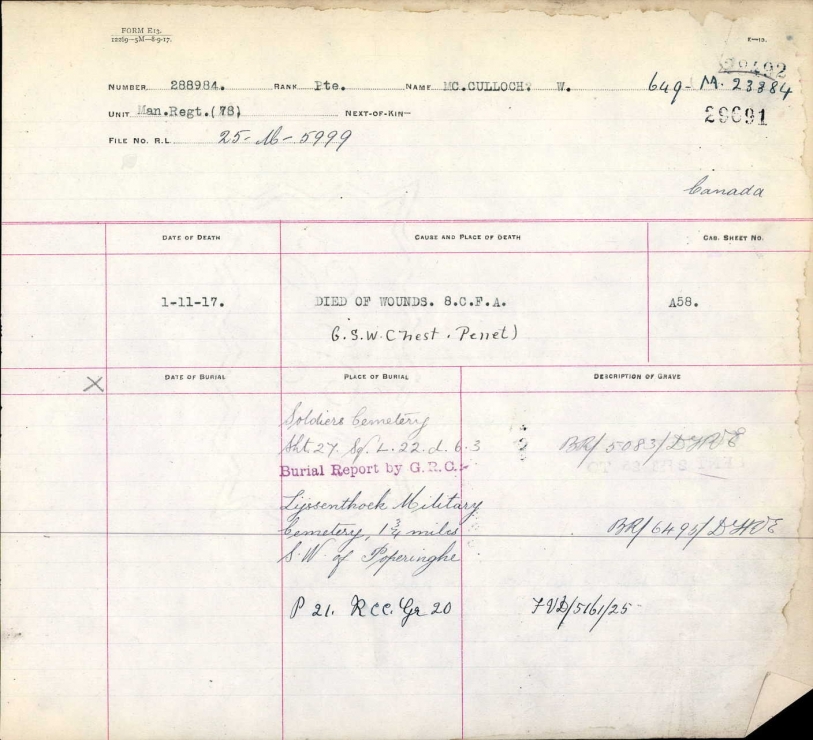 FORM E13.
12269—5M—8-9-17.
E—13.
NUMBER 288984. RANK Pte. NAME MC.CULLOCH. W.
649-M. 23884
UNIT Man.Regt.(78) NEXT-OF-KIN—
29691
FILE NO. R.L. 25-M-5999
Canada
DATE OF DEATH CAUSE AND PLACE OF DEATH CAS. SHEET NO.
1-11-17. DIED OF WOUNDS. 8.C.F.A. A58.
G.S.W. Chest. Penet)
X DATE OF BURIAL PLACE OF BURIAL DESCRIPTION OF GRAVE
Soldiers Cemetery
Sht. 27. Sq. L. 22. d. 6. 3 BR/5083/DHVE
Burial Report by G.R.C:-
Lijssenthock Military
Cemetery, 1 3/4 miles BR/6495/DHVE
S.W. of Poperinghe
P 21. R CC. Gr 20 FVD/5161/25